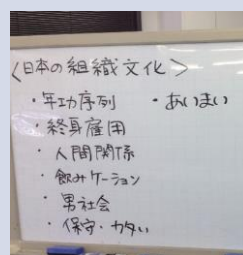 〈日本の組織文化〉
・年功序列 ・あいまい
・終身雇用
・人間関係
・飲みケーション
・男社会
・保守・カタい